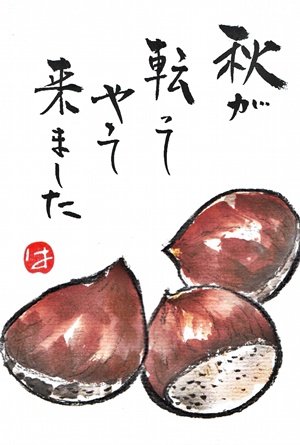 秋が
転って
やって
来ました
は